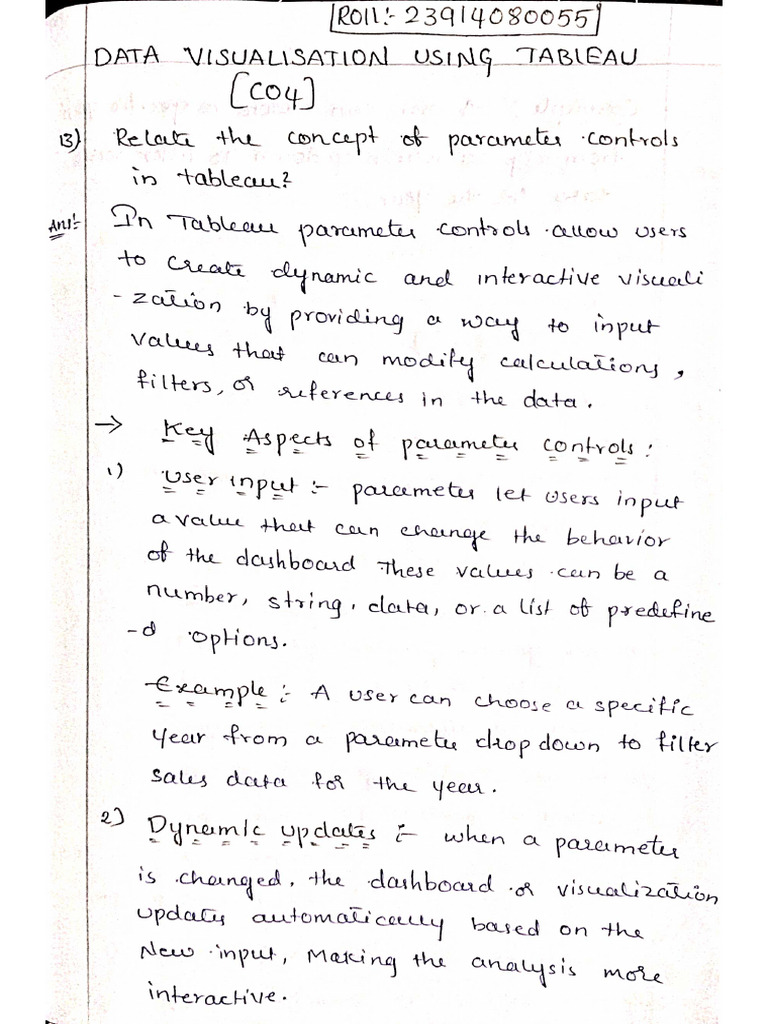 Roll:- 23914080055
DATA VISUALISATION USING TABLEAU
[CO4]
13) Relate the concept of parameter controls
in tableau?
Ans:- In Tableau parameter controls allow users
to create dynamic and interactive visuali
-zation by providing a way to input
values that can modify calculations,
filters, or references in the data.
→ Key Aspects of parameter controls:
1) User input :- parameter let users input
a value that can change the behavior
of the dashboard These values can be a
number, string, data, or a list of predefine
-d options.
Example :- A user can choose a specific
year from a parameter drop down to filter
sales data for the year.
2) Dynamic updates :- when a parameter
is changed, the dashboard or visualization
updates automatically based on the
New input, Making the analysis more
interactive.